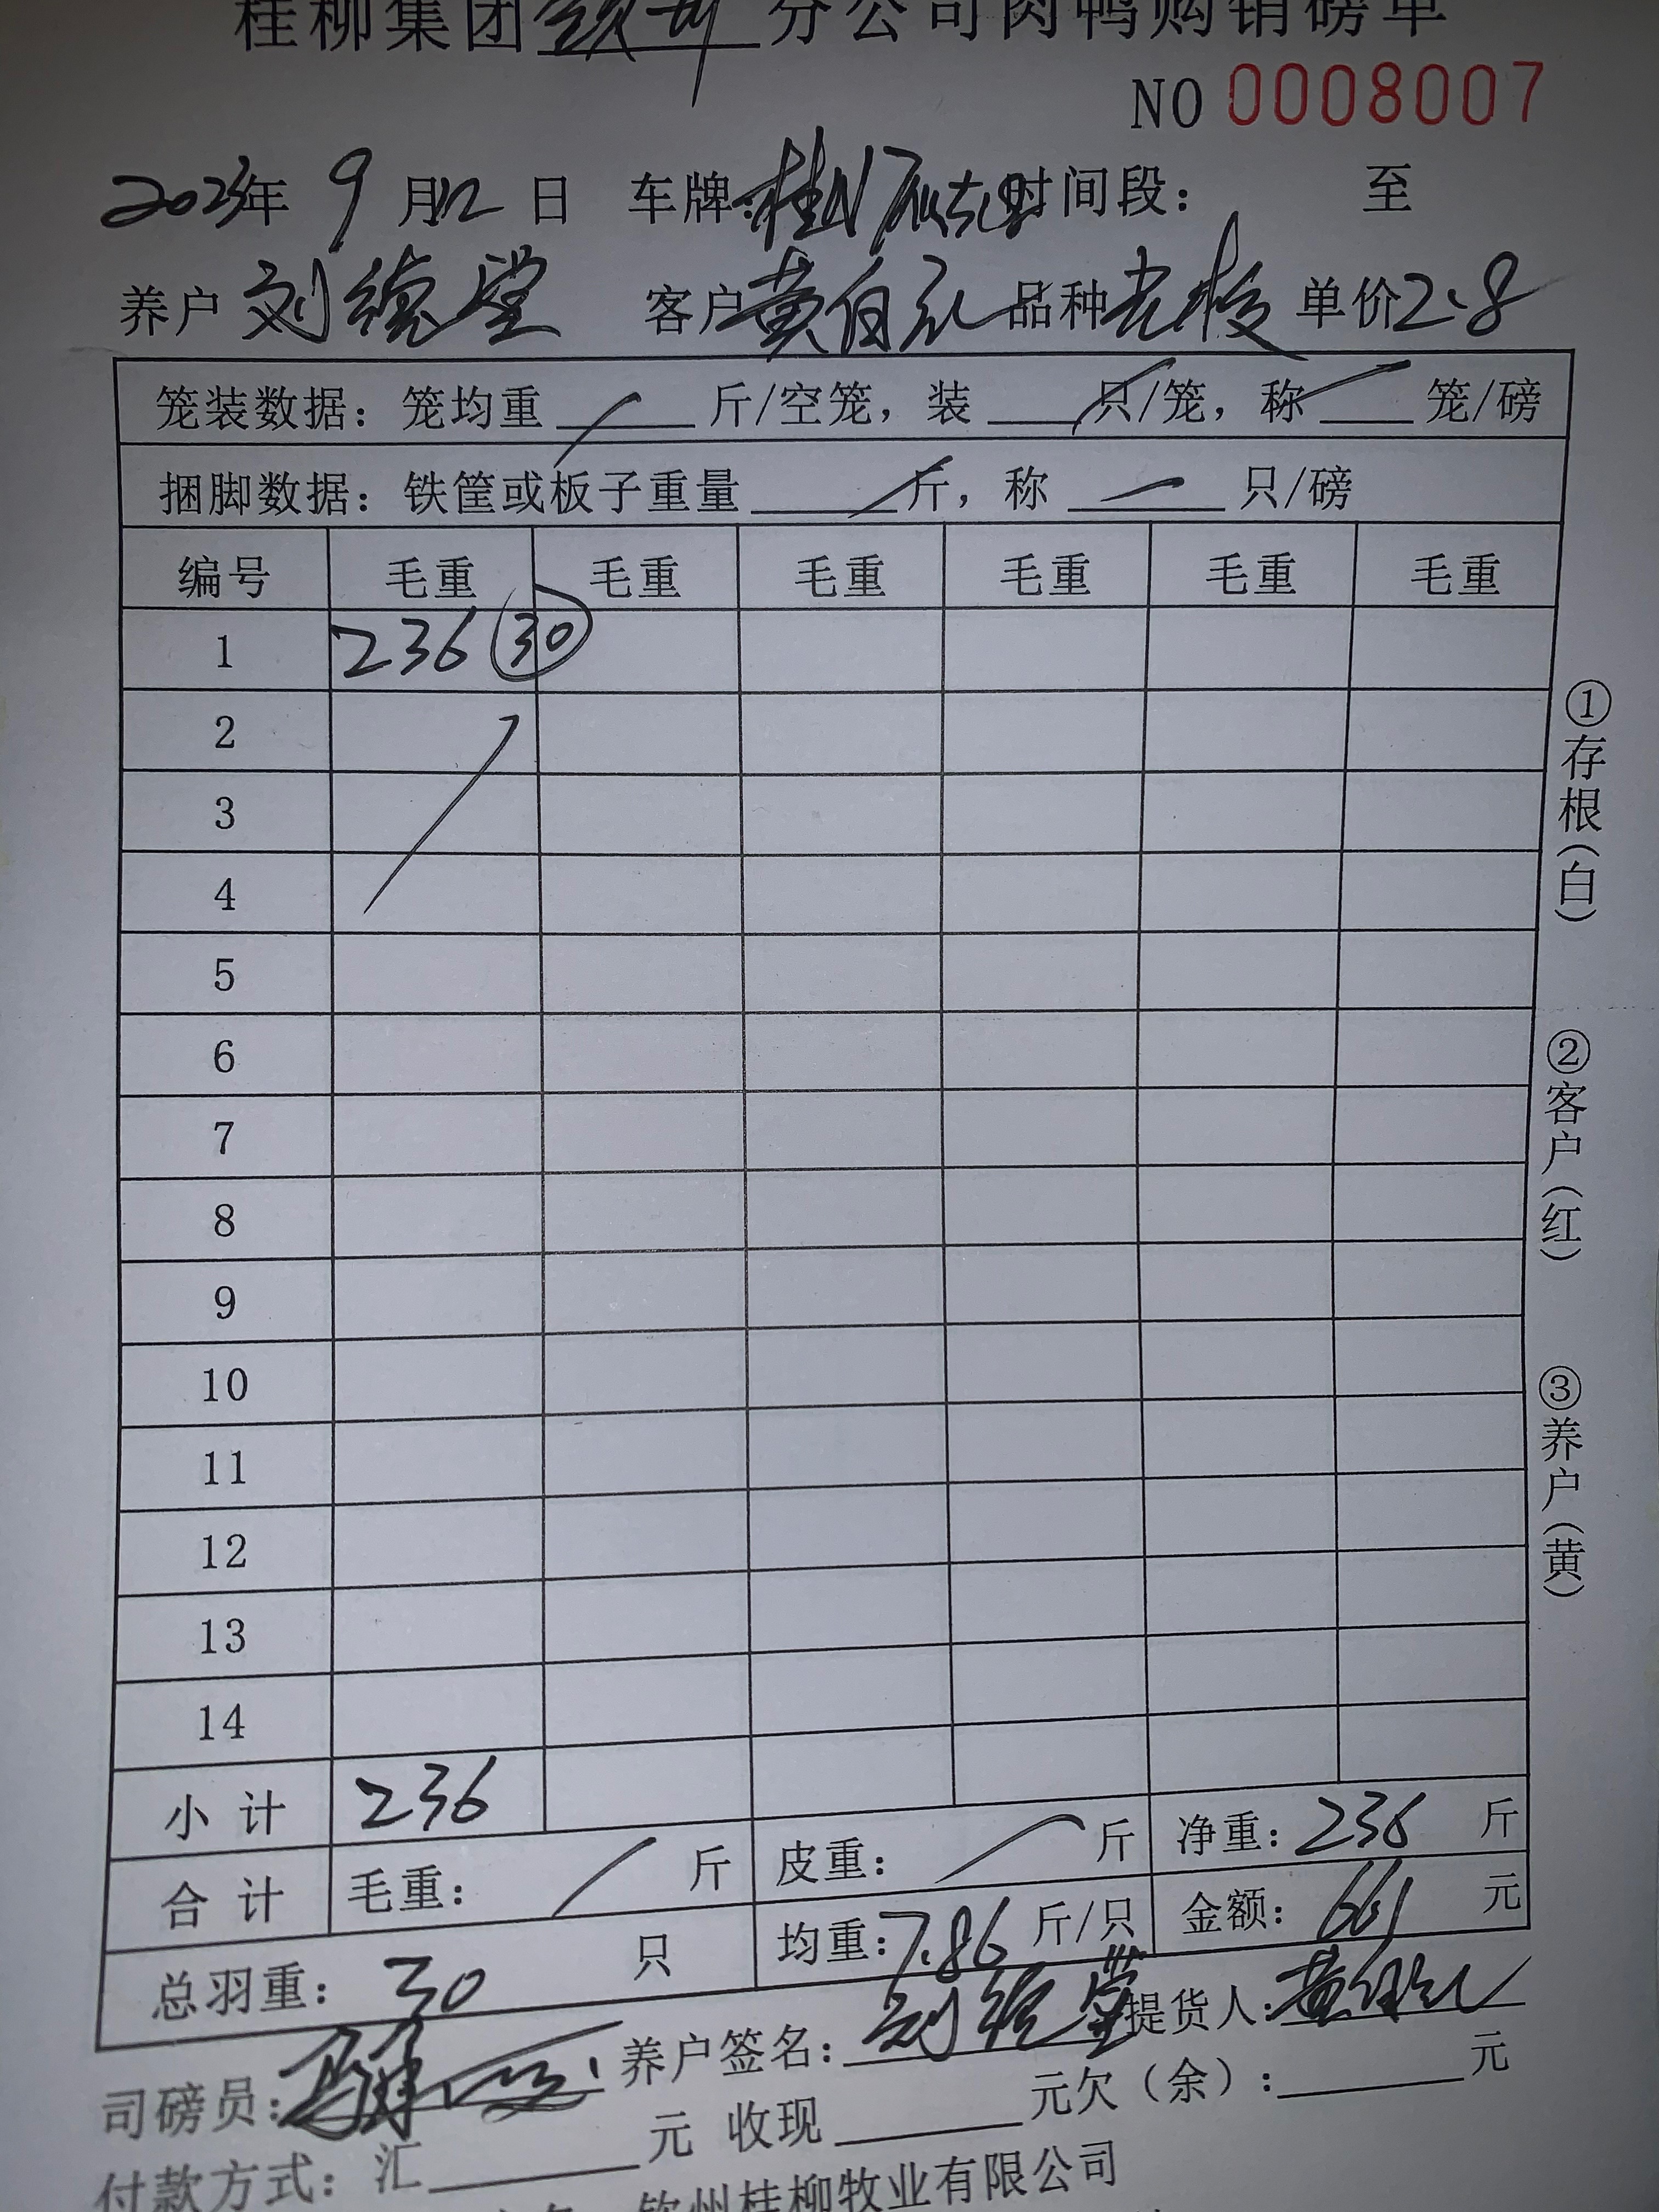 桂柳集团钦州分公司肉鸭购销磅单
NO 0008007
2023年 9 月12 日 车牌: 时间段: 至
养户 刘德堂 客户 黄伯红 品种 单价2.8
笼装数据: 笼均重 斤/空笼, 装 只/笼, 称 笼/磅
捆脚数据: 铁筐或板子重量 斤, 称 只/磅
编号 毛重 毛重 毛重 毛重 毛重 毛重
1 236 30
2
3
4
5
6
7
8
9
10
11
12
13
14
小计 236
合计 毛重: 斤 皮重: 斤 净重: 236 斤
总羽重: 30 只 均重: 7.86 斤/只 金额: 661 元
司磅员: 养户签名: 刘德堂 提货人: 黄伯红
付款方式: 汇 元 收现 元欠(余): 元
钦州桂柳牧业有限公司
①存根(白)
②客户(红)
③养户(黄)